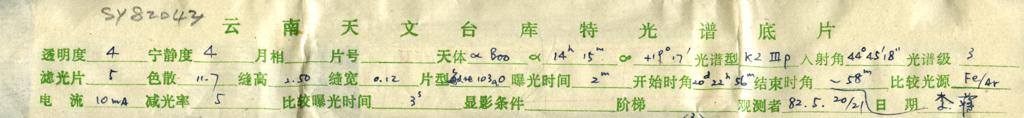 SY82042
云南天文台库特光谱底片
透明度 4 宁静度 4 月相 片号 天体 α Boo α 14h 15m δ +19°17' 光谱型 K2 IIIp 入射角 44°45'18" 光谱级 3
滤光片 5 色散 11.7 缝高 2.50 缝宽 0.12 片型 103aO 曝光时间 2m 开始时角 22h 56m 结束时角 ~58m 比较光源 Fe/Ar
电流 10mA 减光率 5 比较曝光时间 3s 显影条件 阶梯 观测者 82.5.20/21 日期 李